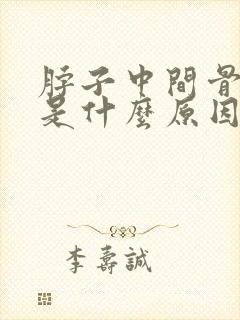 脖子中間骨
是什麼原因
李壽誠